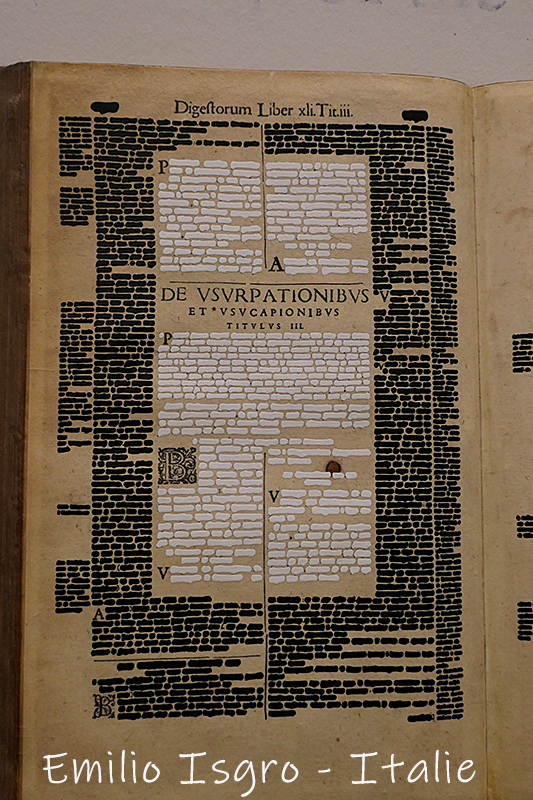 Digeſtorum Liber xli. Tit. iii.
P
A
DE VSVRPATIONIBVS V
ET * VSVCAPIONIBVS
TITVLVS III.
P
B
V
V
A
B
Emilio Isgro - Italie